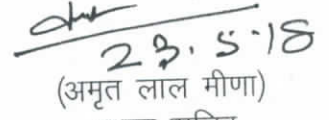 23.5.18
(अमृत लाल मीणा)